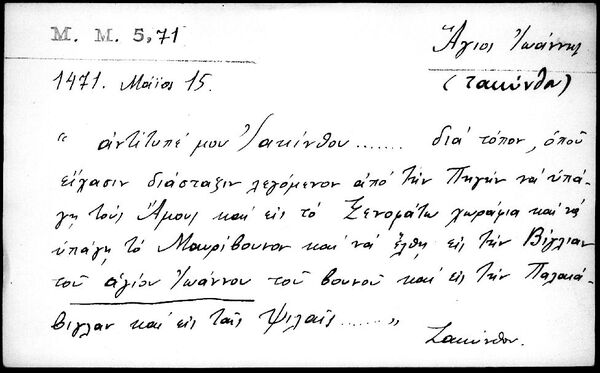 M. M. 5,71
Ἅγιος Ἰωάννης
1471. Μάϊος 15.
(Ζακύνθου)
" ἀντίτυπέ μου Ἰακίνθου....... διά τόπον, ὁποῦ
εἴχασιν διάσταξιν λεγόμενον ἀπό τήν Πηγήν νά ὑπά-
γῃ τούς Ἄμους καί εἰς τό Ξενομάτω χωράφια καί νά
ὑπάγῃ τό Μαυρίβουνον καί νά ἔλθῃ εἰς τήν Βίγλιαν
τοῦ ἁγίου Ἰωάννου τοῦ βουνοῦ καί εἰς τήν Παλαιά-
βιγλαν καί εἰς ταῖς Ψιλαῖς ....... "
Ζακύνθου.